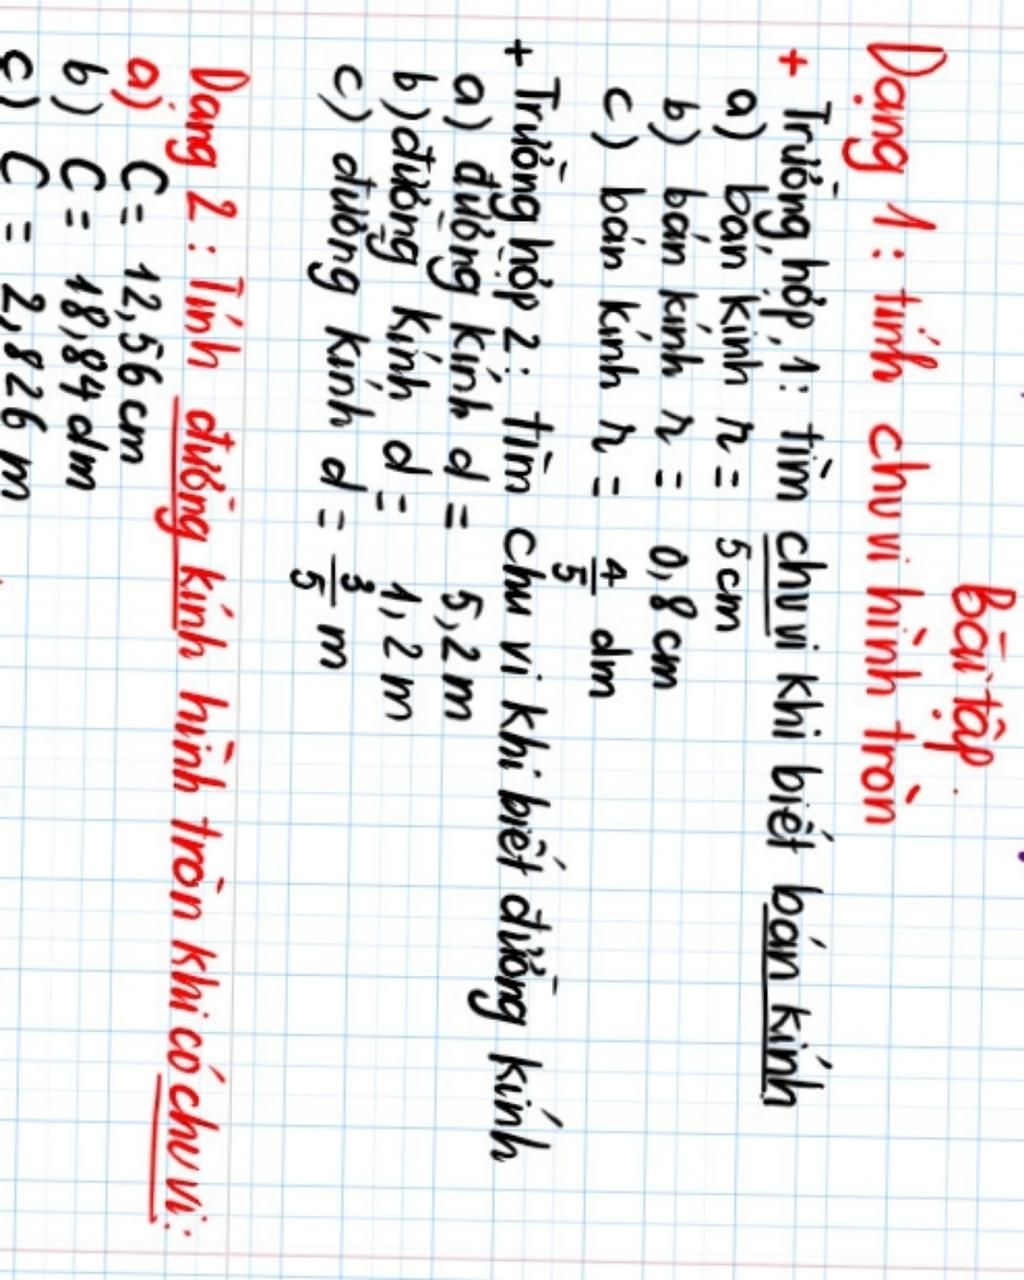 Bài tập
Dạng 1: tính chu vi hình tròn
+ Trường hợp 1: tìm chu vi khi biết bán kính
a) bán kính r = 5cm
b) bán kính r = 0,8 cm
c) bán kính r = 4/5 dm
+ Trường hợp 2: tìm chu vi khi biết đường kính
a) đường kính d = 5,2 m
b) đường kính d = 1,2 m
c) đường kính d = 3/5 m
Dạng 2: Tính đường kính hình tròn khi có chu vi:
a) C = 12,56 cm
b) C = 18,84 dm
c) C = 2,826 m